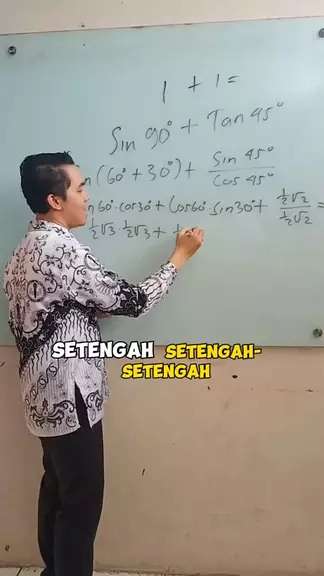 1 + 1 =
Sin 90° + Tan 45°
n (60° + 30°) + Sin 45° / Cos 45°
n 60° . cos 30° + Cos 60° . Sin 30° + ½√2 / ½√2 =
½√3 . ½√3 + ½
SETENGAH SETENGAH-
SETENGAH